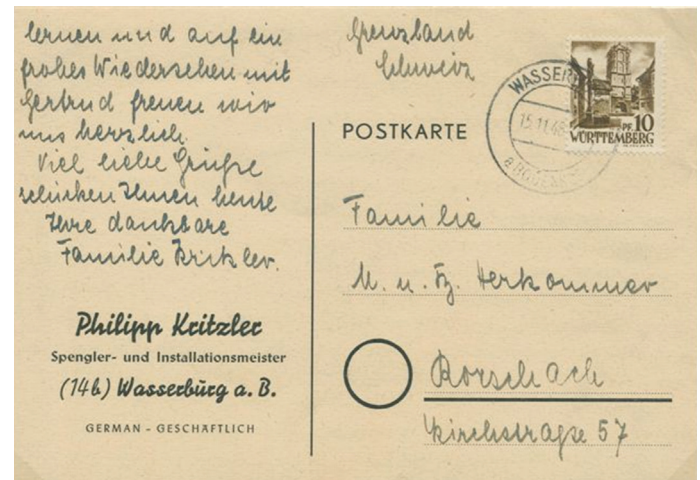 lernen und auf ein
frohes Wiedersehen mit
Gertrud freuen wir
uns herzlich.
Viel liebe Grüße
schicken Ihnen heute
Ihre dankbare
Familie Kritzler.
Philipp Kritzler
Spengler- und Installationsmeister
(14b) Wasserburg a. B.
GERMAN - GESCHÄFTLICH
Grenzland
Schweiz
POSTKARTE
WASSERB
15.11.48
a BODEN
PF. 10
WÜRTTEMBERG
Familie
M. u. Fz. Herkommer
Rorschach
Kirchstraße 57